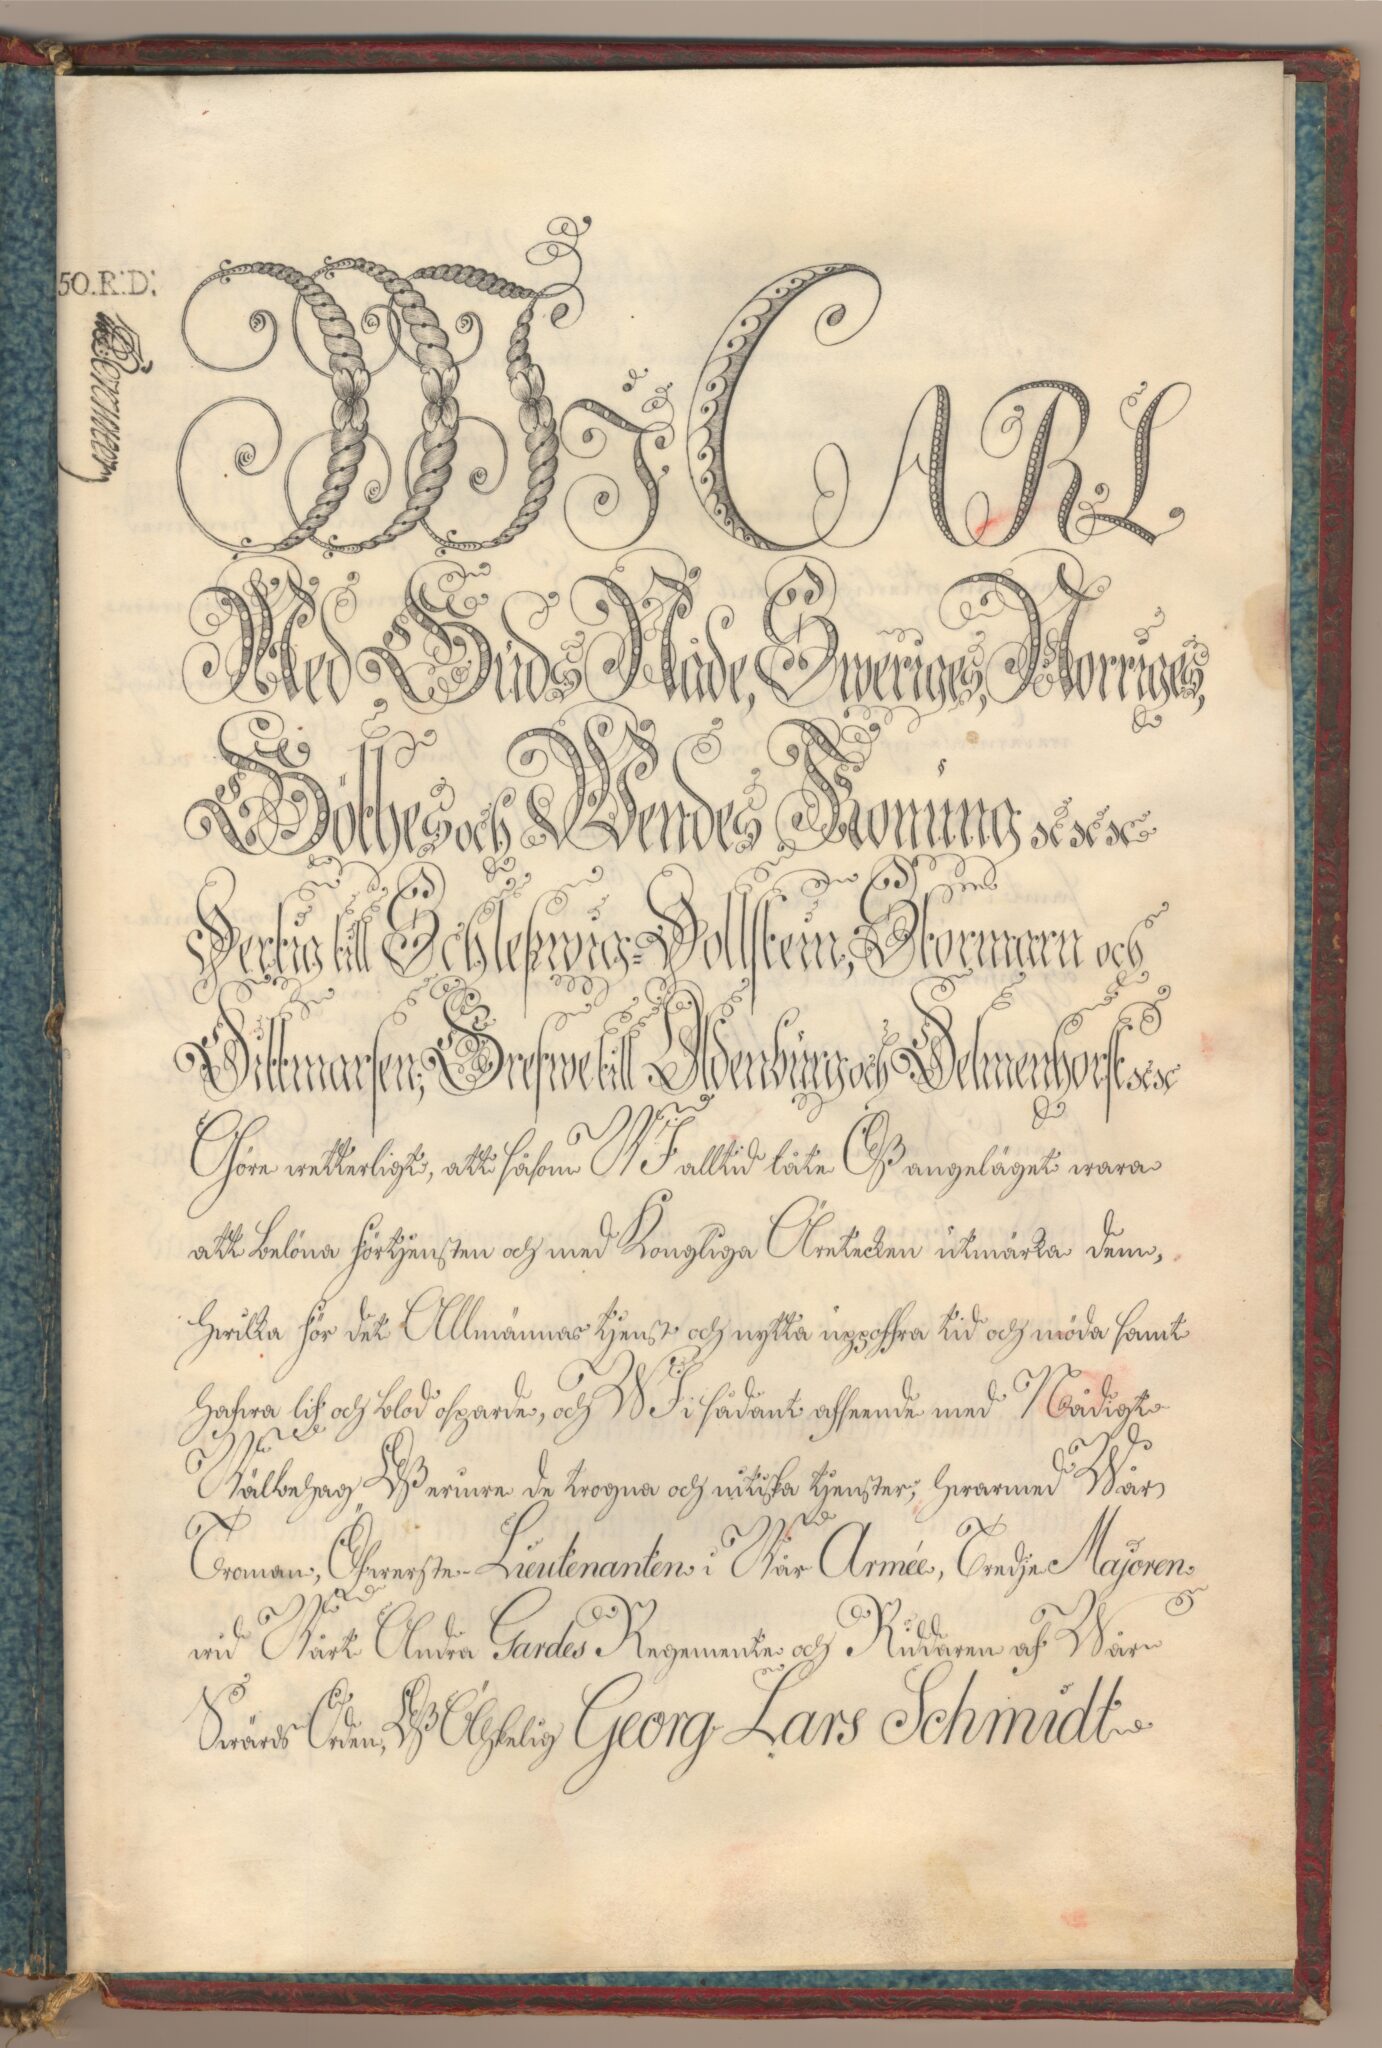 50.R:D:
WJ CARL
Med Guds Nåde, Sweriges, Norriges,
Göthes och Wendes Konung &c &c &c
Hertig till Schleswig=Hollstein, Stormarn och
Dittmarsen, Grefwe till Oldenburg och Delmenhorst &c &c
Göre wetterligt, att såsom WJ alltid låte Oß angeläget wara
att belöna förtjensten och med Kongliga Äretecken utmärka dem,
hwilka för det Allmännas tjenst och nytta uppoffra tid och möda samt
hafwa lif och blod ospardt, och WJ i sådant afseende med Nådigt
Wälbehag Oß erinre de trogna och nitiska tjenster, hwarmed Wår
Troman, Öfwerste-Lieutenanten i Wår Armée, Tredje Majoren
wid Wårt Andra Gardes Regemente och Riddaren af Wår
Swärds Orden, Oß Älskelig Georg Lars Schmidt